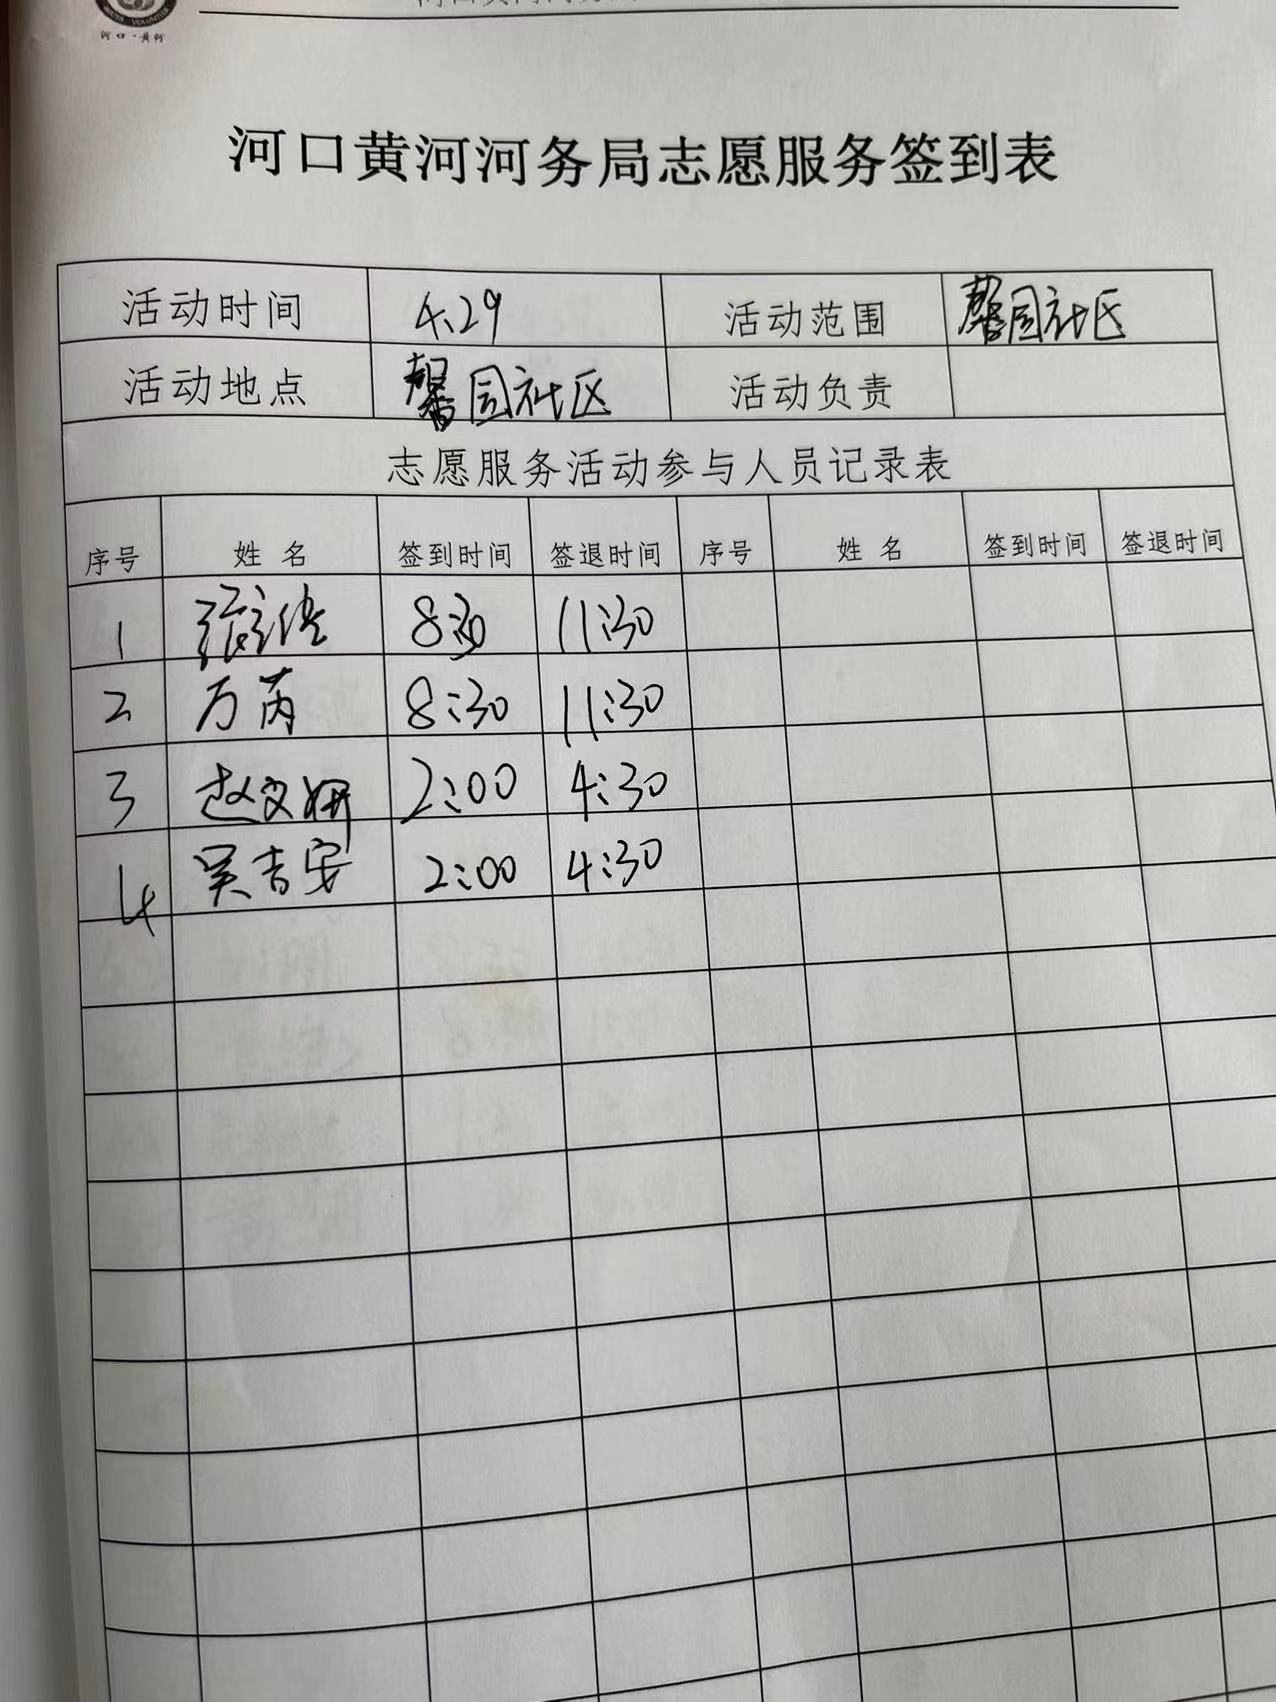 河口·黄河
河口黄河河务局志愿服务签到表
活动时间 4.29 活动范围 馨园社区
活动地点 馨园社区 活动负责
志愿服务活动参与人员记录表
序号 姓名 签到时间 签退时间 序号 姓名 签到时间 签退时间
1 8:30 11:30
2 万芮 8:30 11:30
3 赵文妍 2:00 4:30
4 吴吉安 2:00 4:30